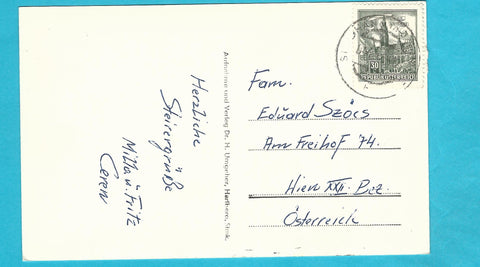 Herzliche
Steirergrüße
Milla u. Fritz
Ceren
Aufnahme und Verlag Dr. H. Umgeher, Hartberg, Stmk.
Fam.
Eduard Szöcs
Am Freihof 74.
Wien XXII. Bez.
Österreich
30
REPUBLIK ÖSTERREICH